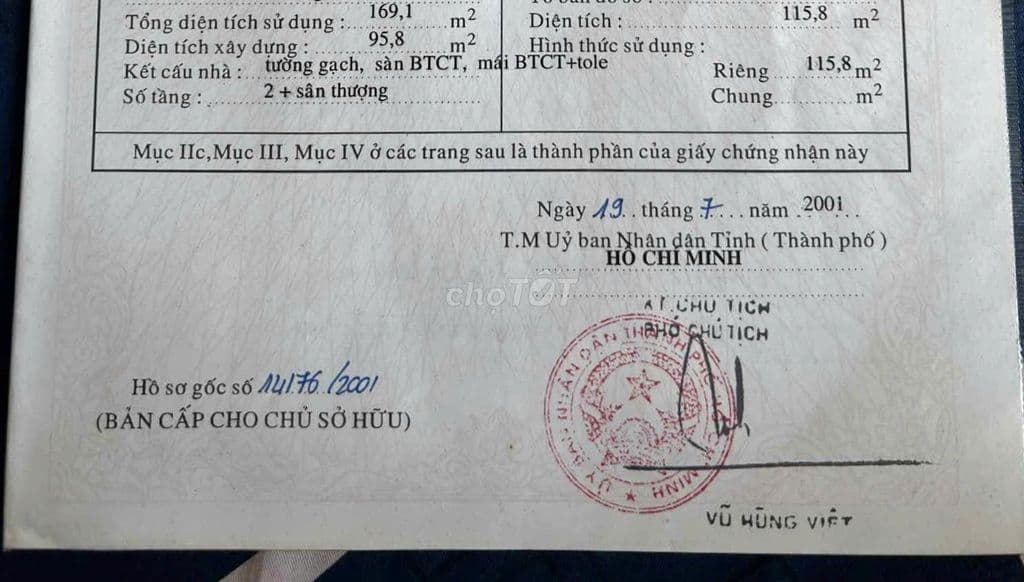 Tổng diện tích sử dụng : 169,1 m2
Diện tích xây dựng : 95,8 m2
Kết cấu nhà : tường gạch, sàn BTCT, mái BTCT+tole
Số tầng : 2 + sân thượng
Diện tích : 115,8 m2
Hình thức sử dụng :
Riêng 115,8 m2
Chung m2
Mục IIc,Mục III, Mục IV ở các trang sau là thành phần của giấy chứng nhận này
Ngày 19 tháng 7 năm 2001
T.M Uỷ ban Nhân dân Tỉnh ( Thành phố )
HỒ CHÍ MINH
choTỐT
KT.CHỦ TỊCH
PHÓ CHỦ TỊCH
ỦY BAN NHÂN DÂN THÀNH PHỐ HỒ CHÍ MINH
Hồ sơ gốc số 14176/2001
(BẢN CẤP CHO CHỦ SỞ HỮU)
VŨ HÙNG VIỆT